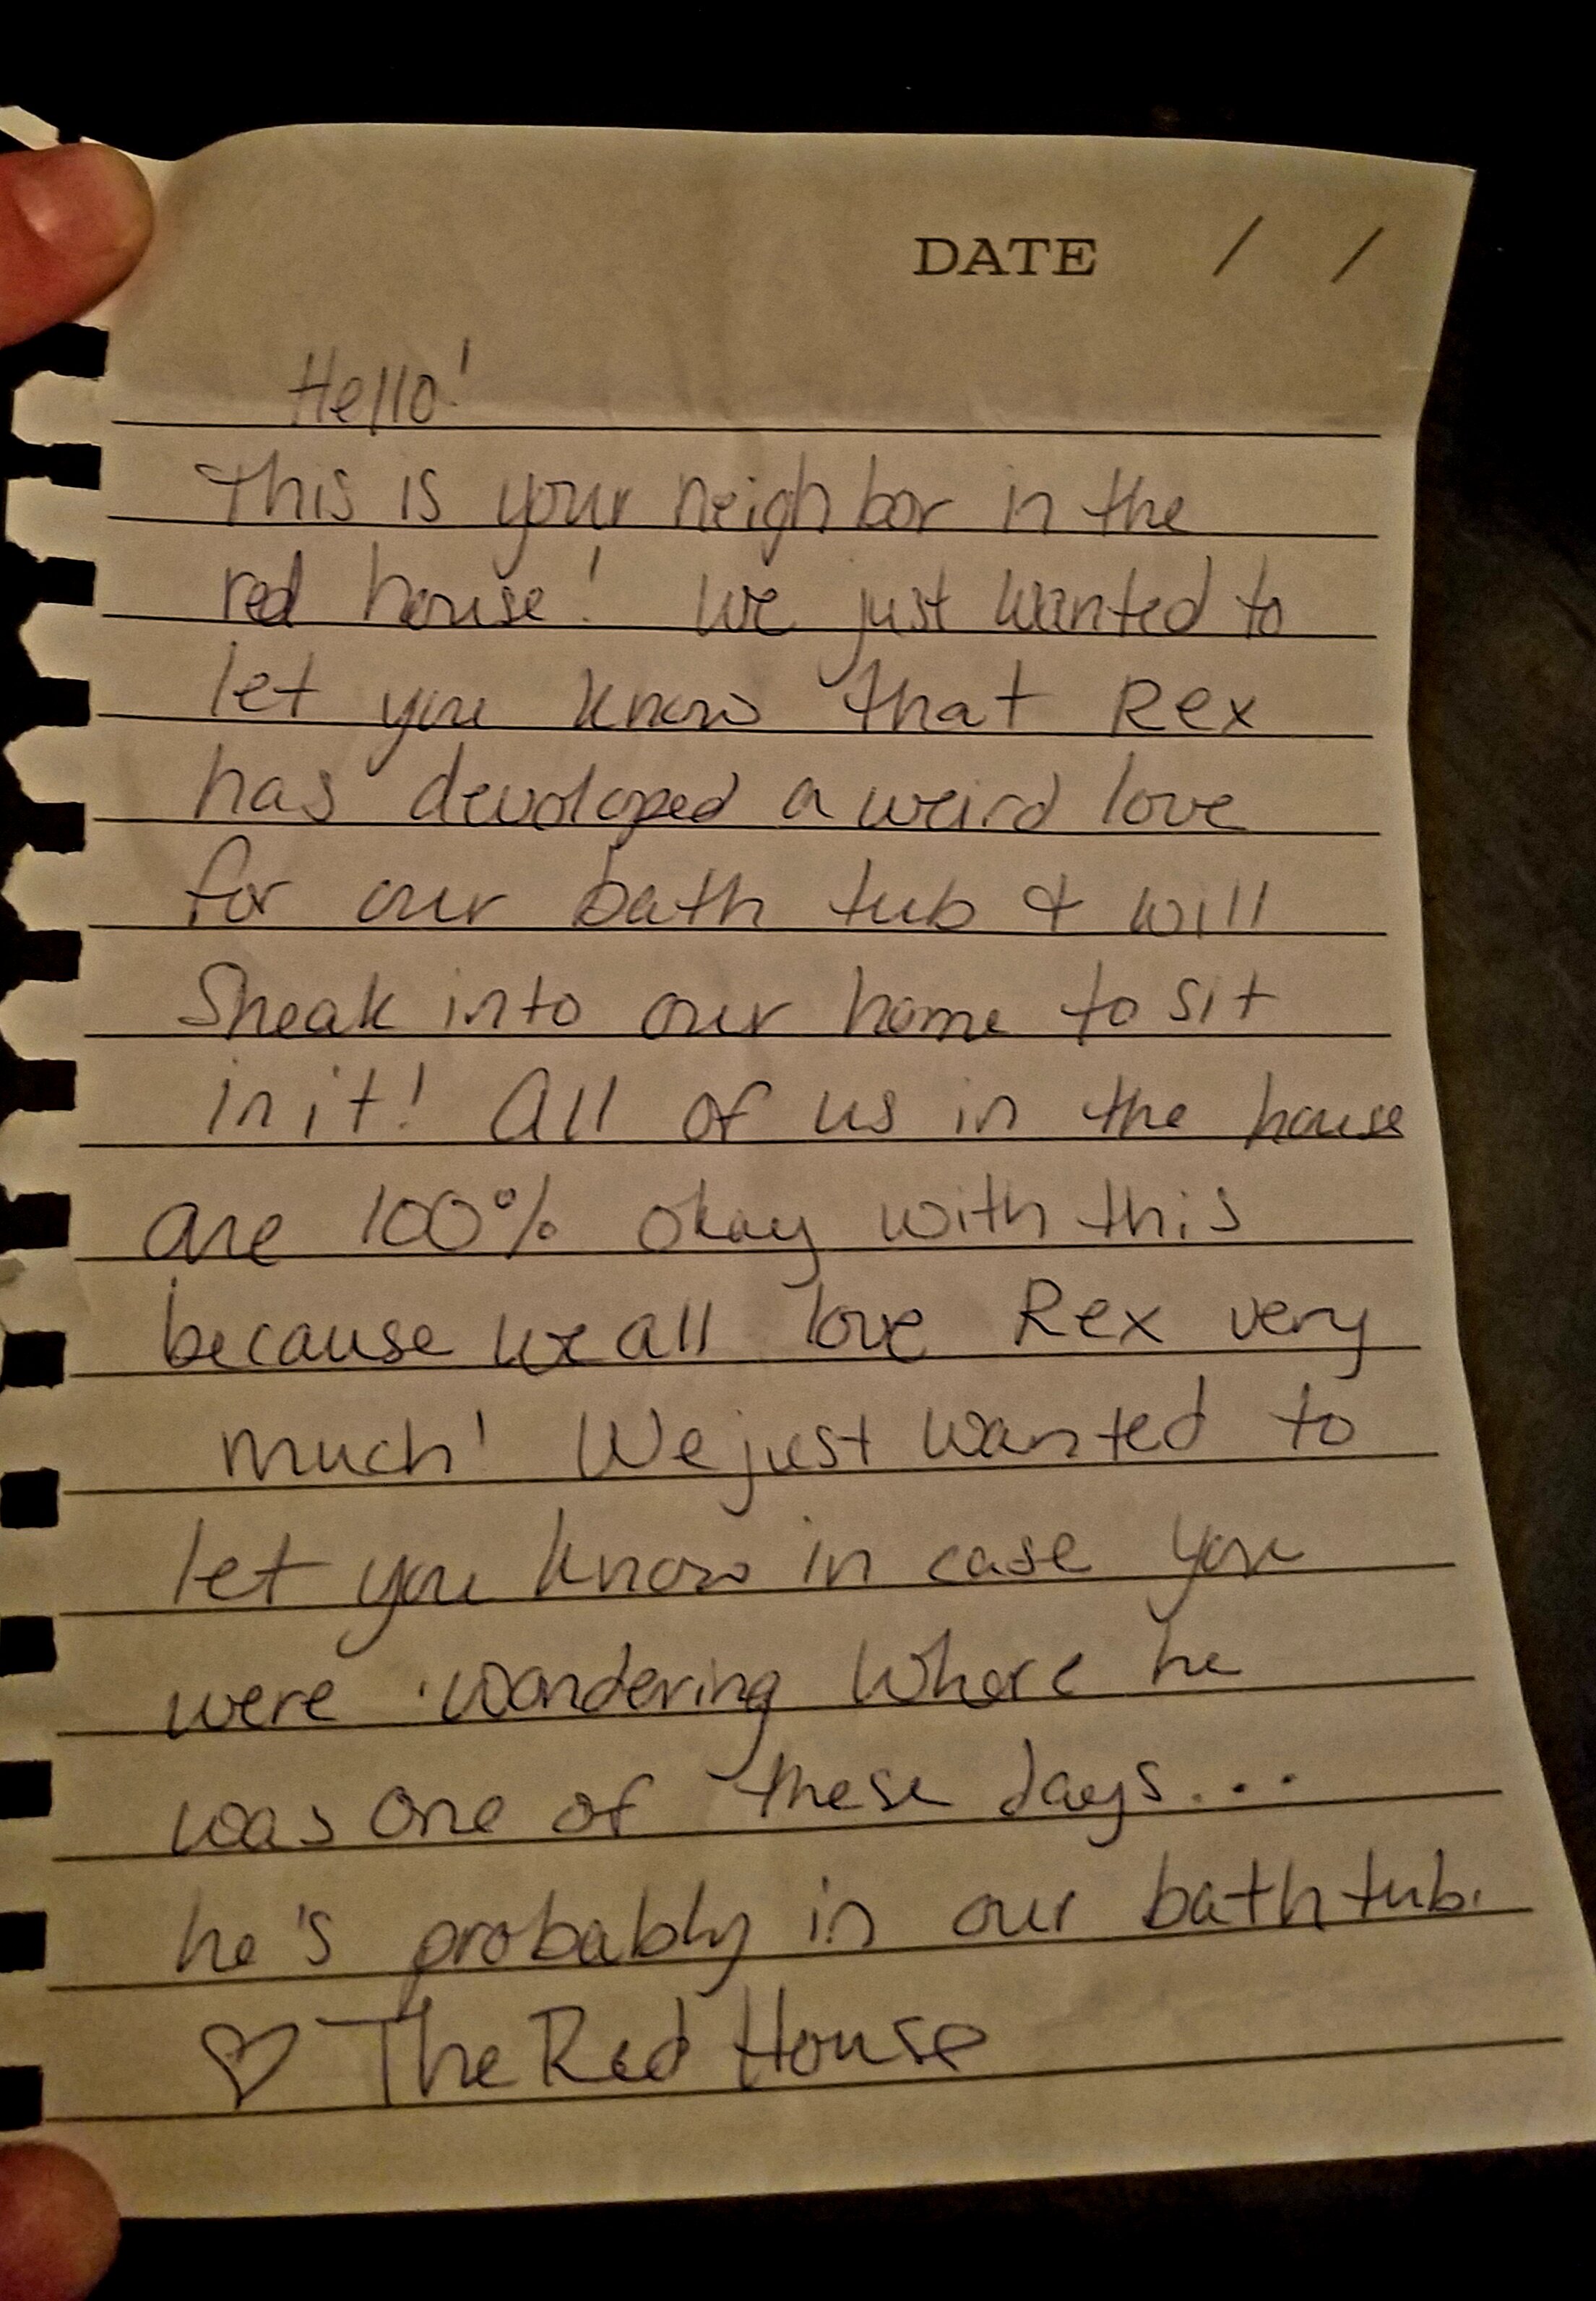 DATE / /
Hello!
This is your neighbor in the
red house! We just wanted to
let you know that Rex
has developed a weird love
for our bath tub & will
Sneak into our home to sit
in it! All of us in the house
are 100% okay with this
because we all love Rex very
much! We just wanted to
let you know in case you
were wondering where he
was one of these days...
he's probably in our bathtub.
♡ The Red House